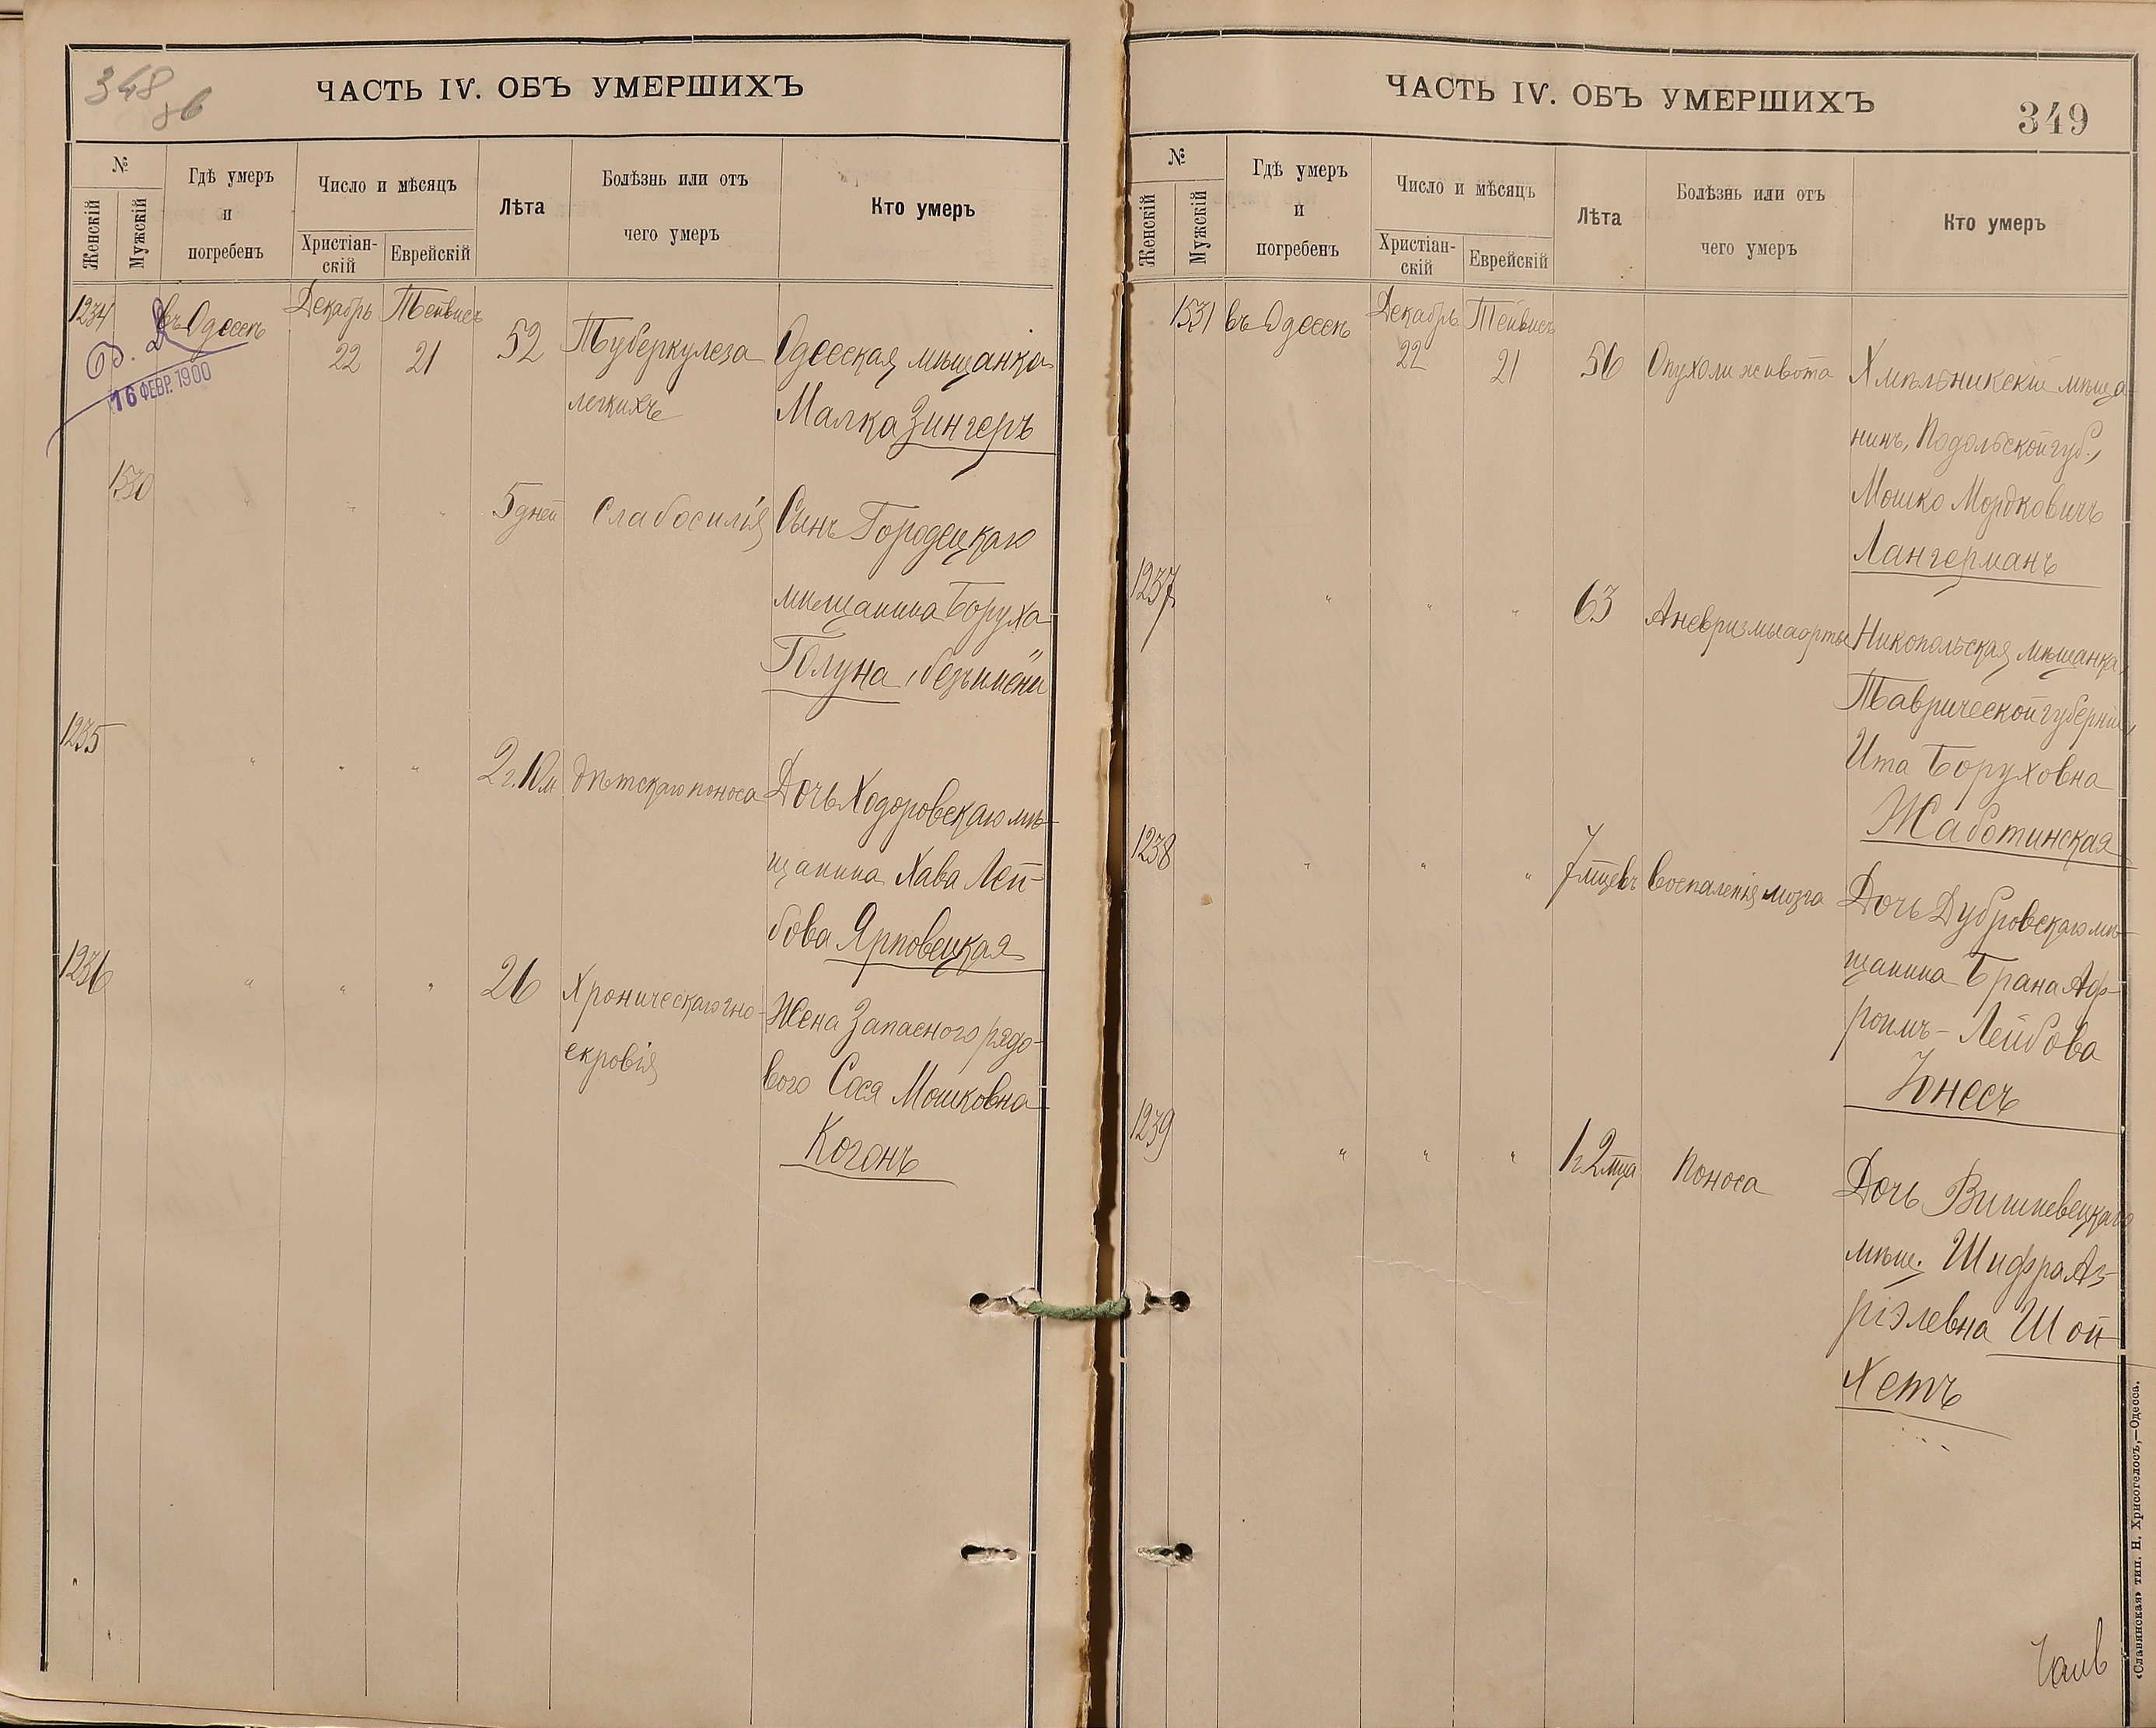 348 об
ЧАСТЬ IV. ОБЪ УМЕРШИХЪ
№
Женскій
Мужскій
Гдѣ умеръ
и
погребенъ
Число и мѣсяцъ
Христіан-
скій
Еврейскій
Лѣта
Болѣзнь или отъ
чего умеръ
Кто умеръ
1234
въ Одессѣ
Декабрь
22
Тейвисъ
21
52
Туберкулеза
легкихъ
Одесская мѣщанка
Малка Зингеръ
16 ФЕВР. 1900
1530
" " "
5 дней
Слабосилія
Сынъ Городецкаго
мѣщанина Боруха
Голуна, безъ имени
1235
" " "
2 г. 10 м
дѣтскаго поноса
Дочь Ходоровскаго мѣ-
щанина Хава Лей-
бова Ярповецкая
1236
" " "
26
Хроническаго гно-
екровія
Жена Запаснаго рядо-
вого Сося Мошковна
Когонъ
ЧАСТЬ IV. ОБЪ УМЕРШИХЪ
349
№
Женскій
Мужскій
Гдѣ умеръ
и
погребенъ
Число и мѣсяцъ
Христіан-
скій
Еврейскій
Лѣта
Болѣзнь или отъ
чего умеръ
Кто умеръ
1531
въ Одессѣ
Декабрь
22
Тейвисъ
21
56
Опухоли живота
Хмѣльникскій мѣща-
нинъ, Подольской губ.,
Мошко Мордковичъ
Лангерманъ
1237
" " "
63
Аневризмы аорты
Никопольская мѣщанка,
Таврической губерніи,
Ита Боруховна
Жаботинская
1238
" " "
7 мцевъ
Воспаленія мозга
Дочь Дубровскаго мѣ-
щанина Брана Аф-
роимъ-Лейбова
Іонесъ
1239
" " "
1 г. 2 мца
Поноса
Дочь Вишневецкаго
мѣщ. Шифра Аз-
ріэлевна Шой-
хетъ
«Славянская» тип. Н. Хрисогелосъ,—Одесса.